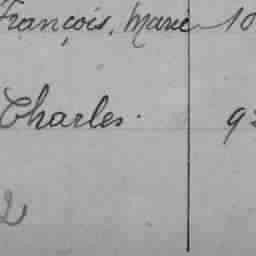 François, Marie 10
Charles. 9
2